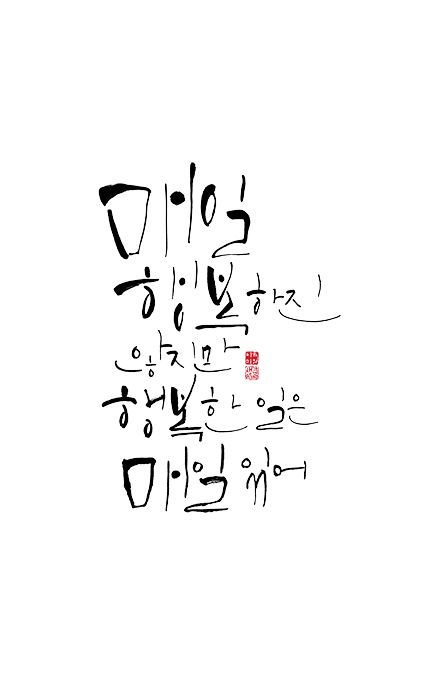 매일
행복하진
않지만
행복한 일은
매일 있어